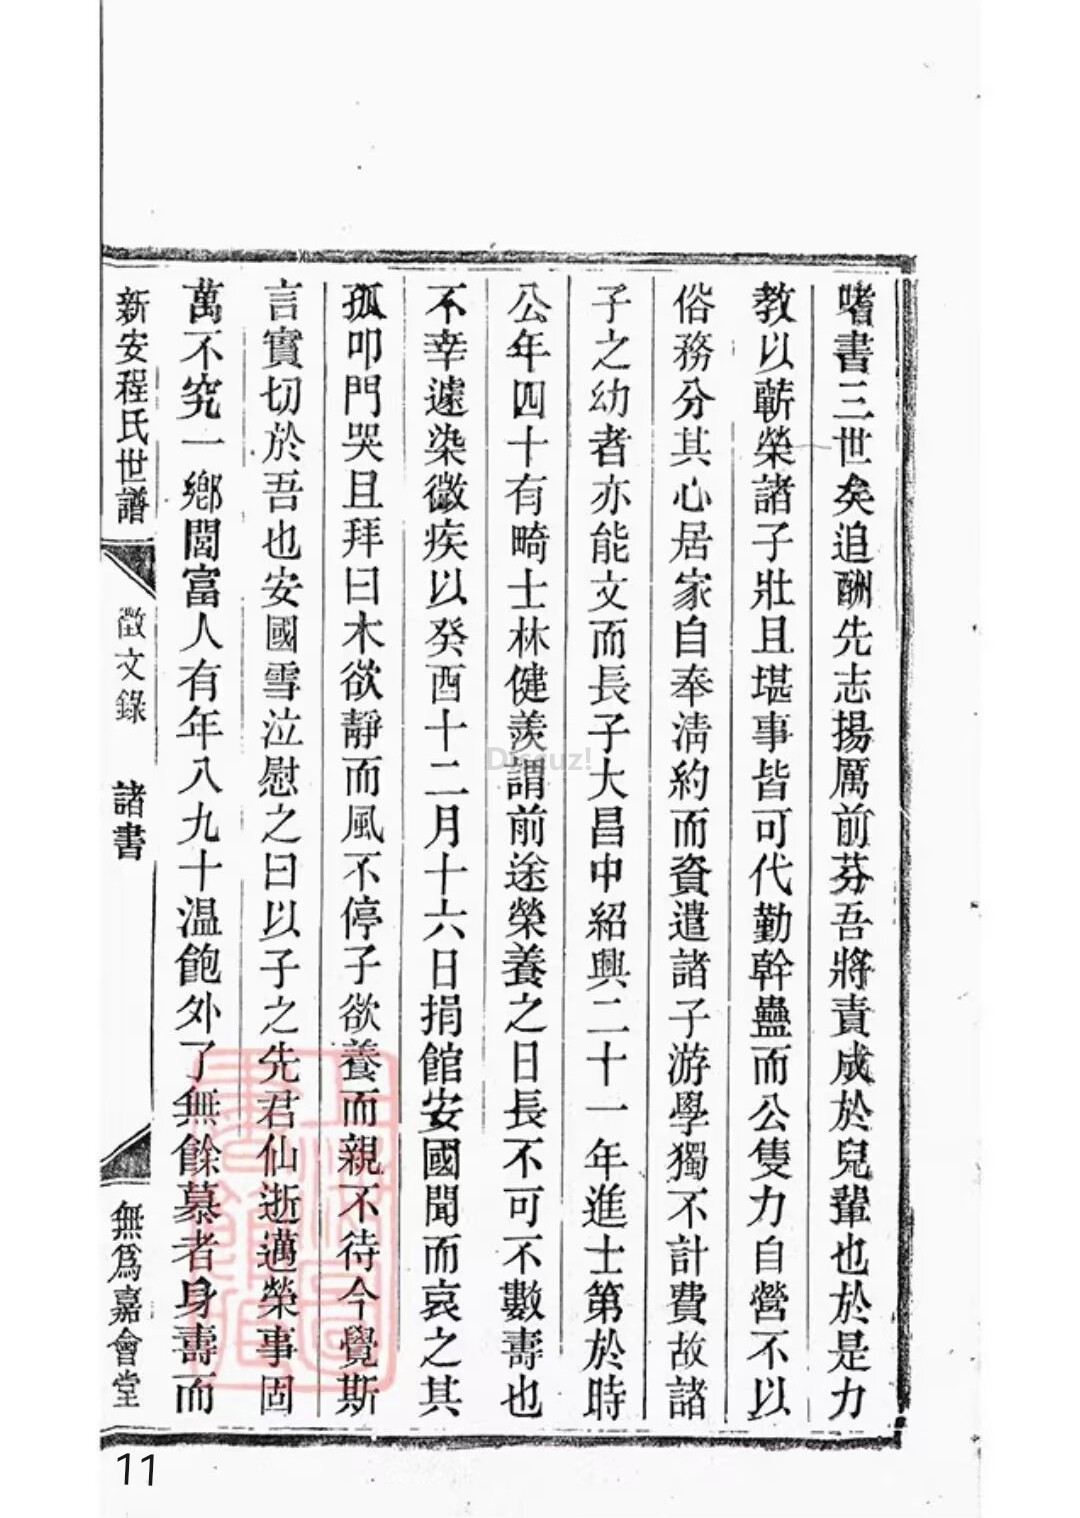 嗜書三世矣追酬先志揚厲前芬吾將責成於兒輩也於是力
教以蘄榮諸子壯且堪事皆可代勤幹蠱而公隻力自營不以
俗務分其心居家自奉淸約而資遣諸子游學獨不計費故諸
子之幼者亦能文而長子大昌中紹興二十一年進士第於時
公年四十有畸士林健羨謂前途榮養之日長不可不數壽也
不幸遽染微疾以癸酉十二月十六日捐館安國聞而哀之其
孤叩門哭且拜曰木欲靜而風不停子欲養而親不待今覺斯
言實切於吾也安國雪泣慰之曰以子之先君仙逝邁榮事固
萬不究一鄉閭富人有年八九十溫飽外了無餘慕者身壽而
新安程氏世譜
徵文錄
諸書
無爲嘉會堂
Discuz!
11